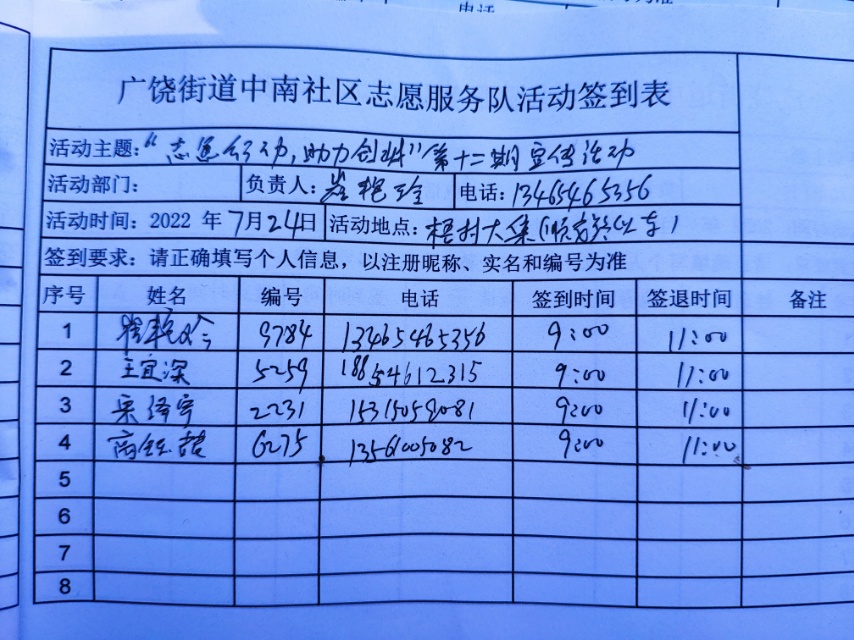 电话
广饶街道中南社区志愿服务队活动签到表
活动主题:“志愿行动,助力创城”第十二期宣传活动
活动部门: 负责人: 崔艳玲 电话: 13465465356
活动时间: 2022 年 7月24日 活动地点: 梧村大集(
签到要求: 请正确填写个人信息,以注册昵称、实名和编号为准
序号 姓名 编号 电话 签到时间 签退时间 备注
1 崔艳玲 9784 13465465356 9:00 11:00
2 王宜深 5259 18854612315 9:00 11:00
3 泽宇 2231 15315059081 9:00 11:00
4 高钰喆 6275 13561005082 9:00 11:00
5
6
7
8